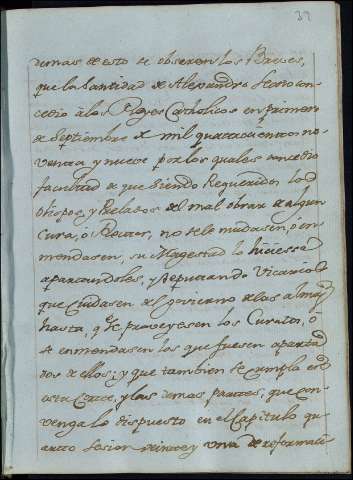 39
demas de esto se observen los Breves,
que la Santidad de Alexandro Sexto con
cedio à los Reyes Catholicos en primero
de Septiembre de mil quatrocientos no
venta y nueve por los quales concedio
facultad de que siendo Requeridos los
Obispos, y Prelados del mal obrar de algun
Cura, ò Rector, no se le mudasen, ò en
mendasen, su Magestad lo hiciesse
apartandoles, y Deputando Vicarios
que Cuidasen del govierno de las almas
hasta, que se proveyesen los Curatos, ò
se enmendasen los que fuesen aparta
dos de ellos; y que tambien se cumpla en
esta Corte, y las demas partes, que con
venga lo dispuesto en el Capitulo qu
arto sesion veinte y una de reformati